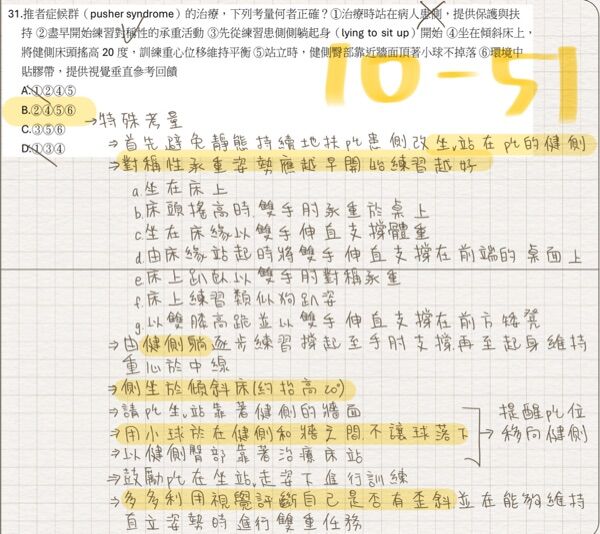 31.推者症候群（pusher syndrome）的治療，下列考量何者正確？①治療時站在病人患側，提供保護與扶
持 ②盡早開始練習對稱性的承重活動 ③先從練習患側側躺起身（lying to sit up）開始 ④坐在傾斜床上，
將健側床頭搖高 20 度，訓練重心位移維持平衡 ⑤站立時，健側臀部靠近牆面頂著小球不掉落 ⑥環境中
貼膠帶，提供視覺垂直參考回饋
A.①②④⑤
B.②④⑤⑥
C.③⑤⑥
D.①③④
10-51
→特殊考量
⇒首先避免靜態持續地扶pt患側改坐、站在pt的健側
⇒對稱性承重姿勢應越早開始練習越好
a.坐在床上
b.床頭搖高時,雙手肘承重於桌上
c.坐在床緣以雙手伸直支撐體重
d.由床緣站起時將雙手伸直支撐在前端的桌面上
e.床上趴臥以雙手肘對稱承重
f.床上練習類似狗趴姿
g.以雙膝高跪並以雙手伸直支撐在前方矮凳
⇒由健側躺逐步練習撐起至手肘支撐,再至起身維持
重心於中線
⇒側坐於傾斜床(約抬高20°)
⇒請pt坐、站靠著健側的牆面
⇒用小球放在健側和牆之間,不讓球落下
⇒以健側臀部靠著治療床站
→提醒pt位
移向健側
⇒鼓勵pt在坐、站、走姿下進行訓練
⇒多多利用視覺評斷自己是否有歪斜,並在能夠維持
直立姿勢時進行雙重任務